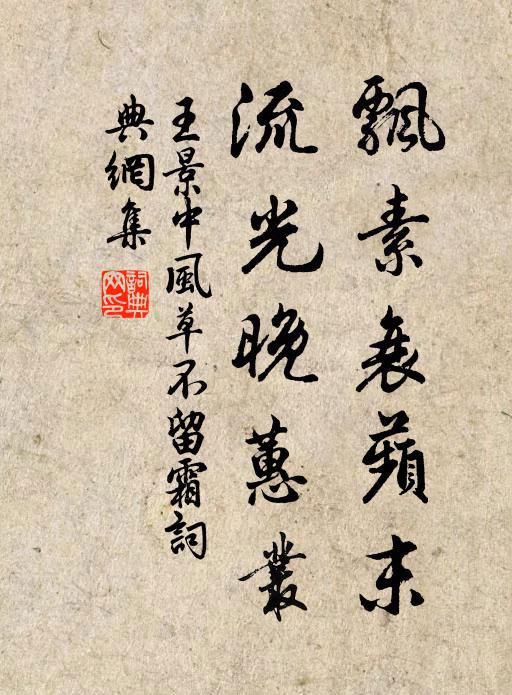 飄素衰蘋末
流光晚蕙叢
王景中風草不留霜詞
典網集
詞典網印